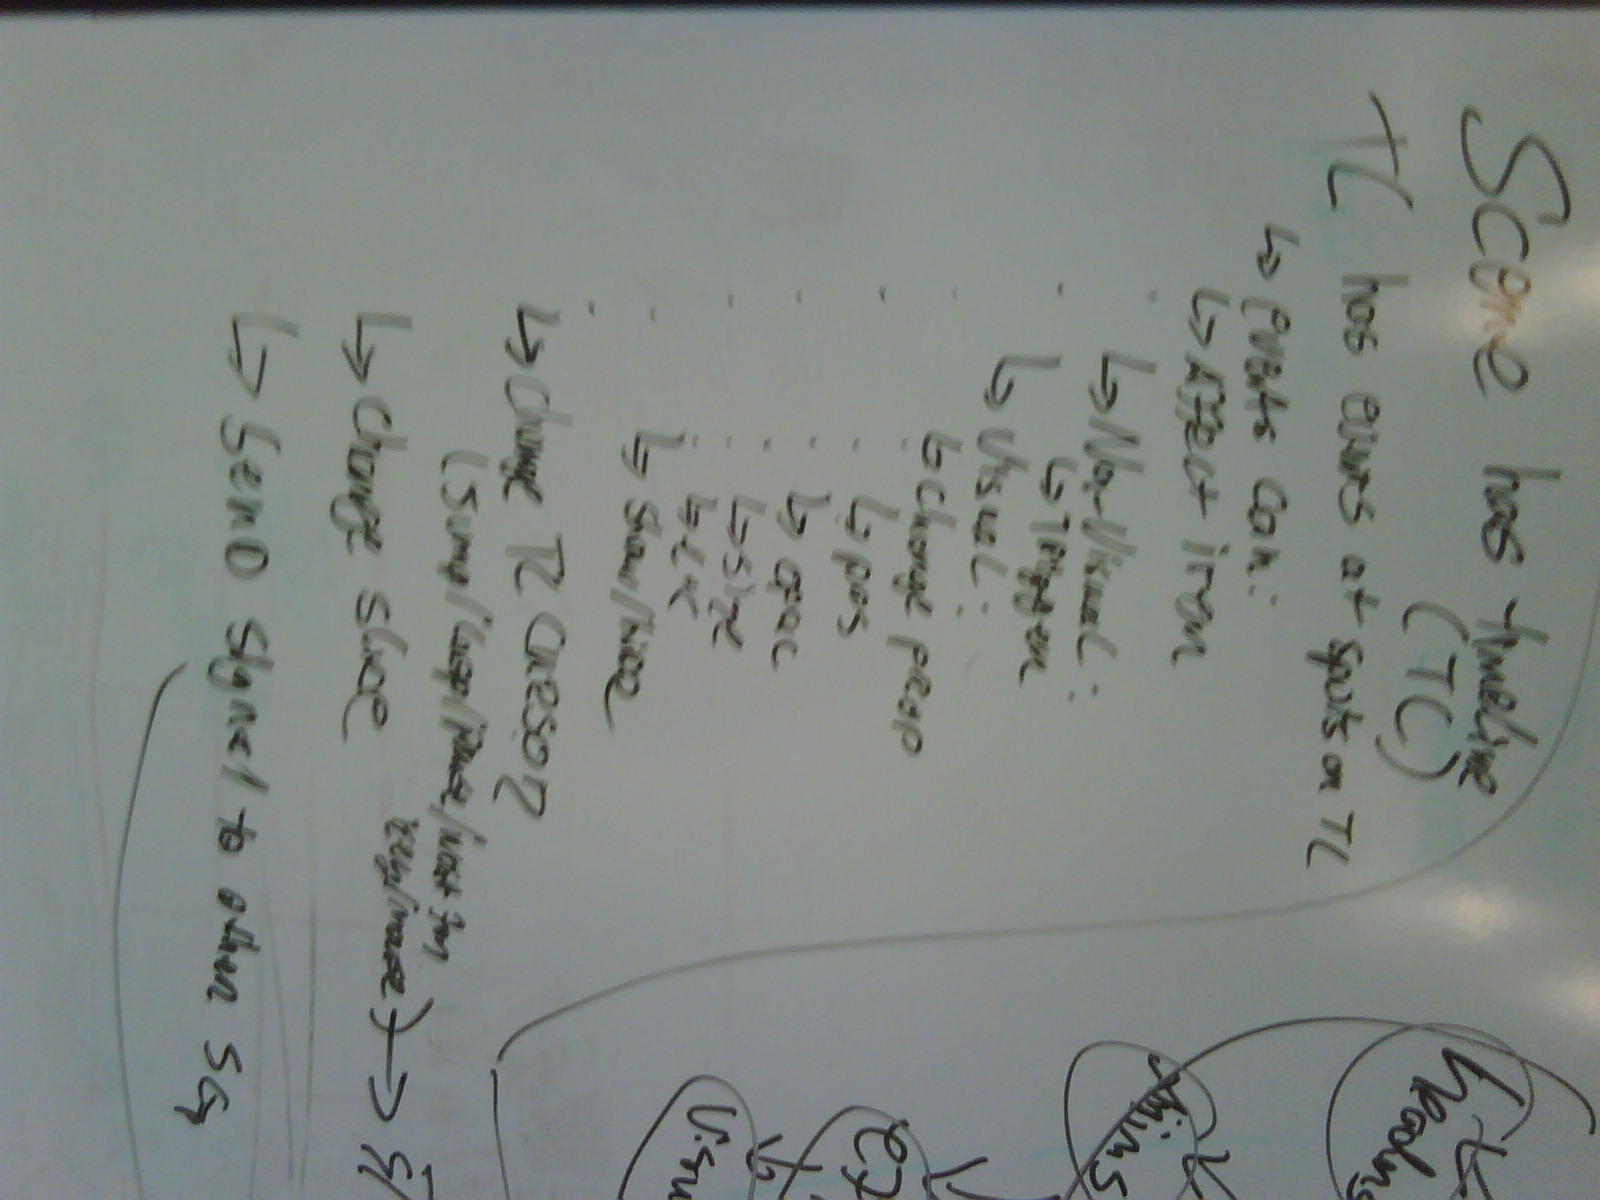 Scene has timeline
(TL)
TL has events at spots on TL
↳ events can:
↳ Affect item
↳ Non-Visual:
↳ Trigger
↳ Visual:
↳ change prop
↳ pos
↳ opac
↳ size
↳ etc
↳ show/hide
↳ change TL cursor
(jump/loop/pause/wait for
key/mouse) →
↳ change slide
↳ send signal to other SG
heading
anims